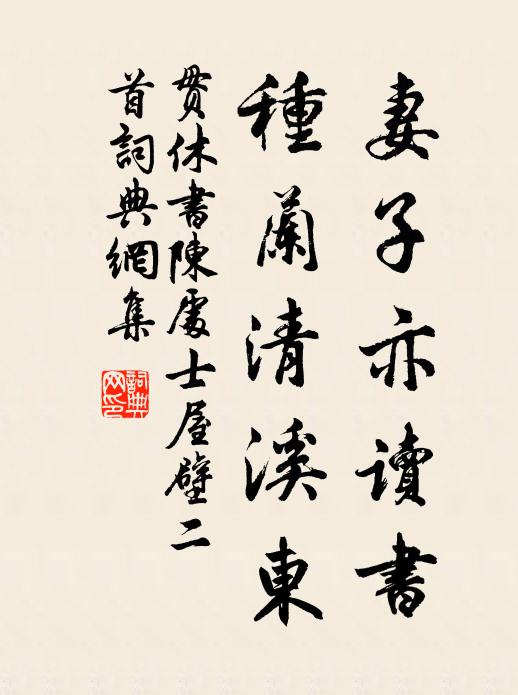 妻子亦讀書
種蘭清溪東
貫休書陳處士屋壁二
首詞典網集
詞典
网印